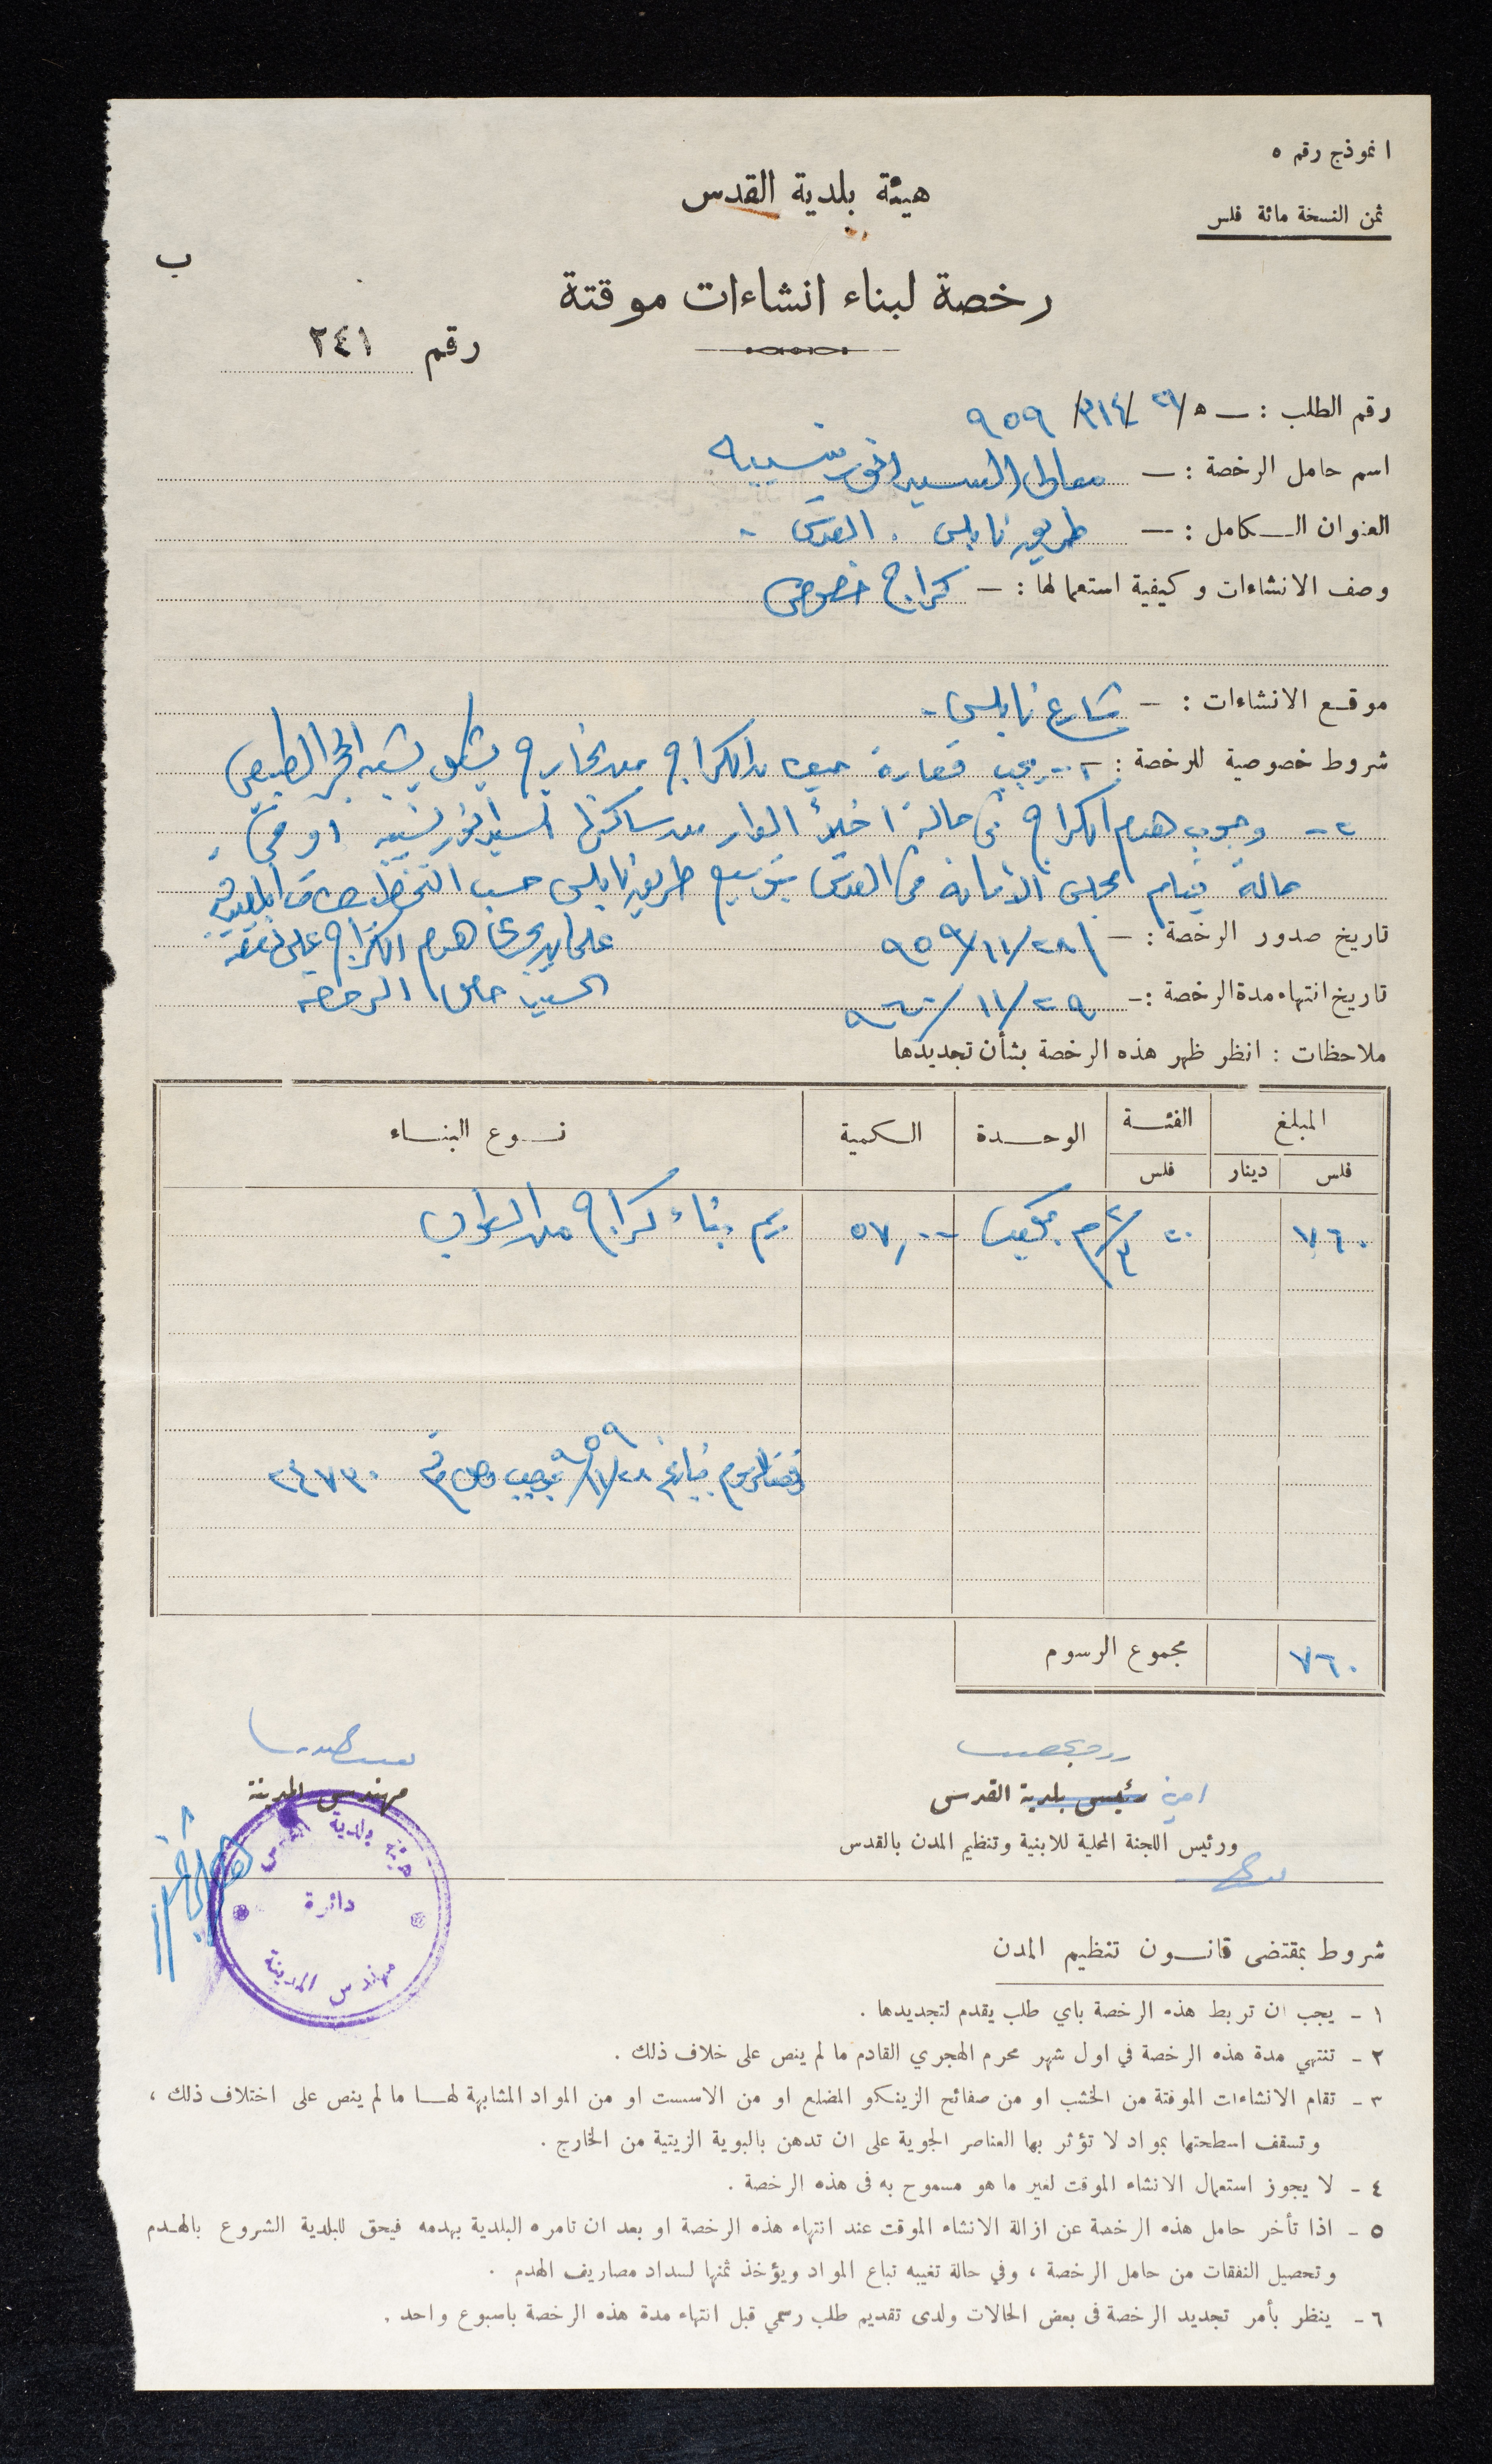 انموذج رقم ٥
ثمن النسخة مائة فلس
هيئة بلدية القدس
ب
رخصة لبناء انشاءات موقتة
رقم ٢٤١
رقم الطلب : — ٥/٢٦/٣١٤/٩٥٩
اسم حامل الرخصة : — معالي السيد انور نسيبه
العنوان الكامل : — طريق نابلس . القدس .
وصف الانشاءات وكيفية استعمالها : — كراج خصوصي
موقع الانشاءات : — شارع نابلس .
شروط خصوصية للرخصة : — ١- يجب قصارة الكراج من الخارج بشكل يشبه الحجر الطبيعي
٢- وجوب هدم الكراج في حالة اخلاء الدار من ساكنها السيد انور نسيبه او في
حالة قيام مجلس الامانة في القدس بتوسيع طريق نابلس حسب
تاريخ صدور الرخصة : — ٢٨/١١/٩٥٩ على ان يجري هدم الكراج على نفقة
تاريخ انتهاء مدة الرخصة : - ٢٩/١١/٩٦٠ السيد حامل الرخصة
ملاحظات : انظر ظهر هذه الرخصة بشأن تجديدها
المبلغ الفئة الوحدة الكمية نوع البناء
فلس دينار فلس
٧٦٠ ٤٠ م مكعب ٥٧,٠٠ رسم بناء كراج من الطوب
دفعت الرسوم بتاريخ ٢٨/١١/٩٥٩ بموجب وصل رقم ٢٤٧٣٠
٧٦٠ مجموع الرسوم
امين رئيس بلدية القدس
مهندس المدينة
ورئيس اللجنة المحلية للابنية وتنظيم المدن بالقدس
هيئة بلدية القدس
دائرة
مهندس المدينة
شروط بمقتضى قانون تنظيم المدن
١ - يجب ان تربط هذه الرخصة باي طلب يقدم لتجديدها .
٢ - تنتهي مدة هذه الرخصة في اول شهر محرم الهجري القادم ما لم ينص على خلاف ذلك .
٣ - تقام الانشاءات الموقتة من الخشب او من صفائح الزينكو المضلع او من الاسبست او من المواد المشابهة لها ما لم ينص على اختلاف ذلك ،
وتسقف اسطحتها بمواد لا تؤثر بها العناصر الجوية على ان تدهن بالبوية الزيتية من الخارج .
٤ - لا يجوز استعمال الانشاء الموقت لغير ما هو مسموح به في هذه الرخصة .
٥ - اذا تأخر حامل هذه الرخصة عن ازالة الانشاء الموقت عند انتهاء هذه الرخصة او بعد ان تامره البلدية بهدمه فيحق للبلدية الشروع بالهدم
وتحصيل النفقات من حامل الرخصة ، وفي حالة تغيبه تباع المواد ويؤخذ ثمنها لسداد مصاريف الهدم .
٦ - ينظر بأمر تجديد الرخصة في بعض الحالات ولدى تقديم طلب رسمي قبل انتهاء مدة هذه الرخصة باسبوع واحد .